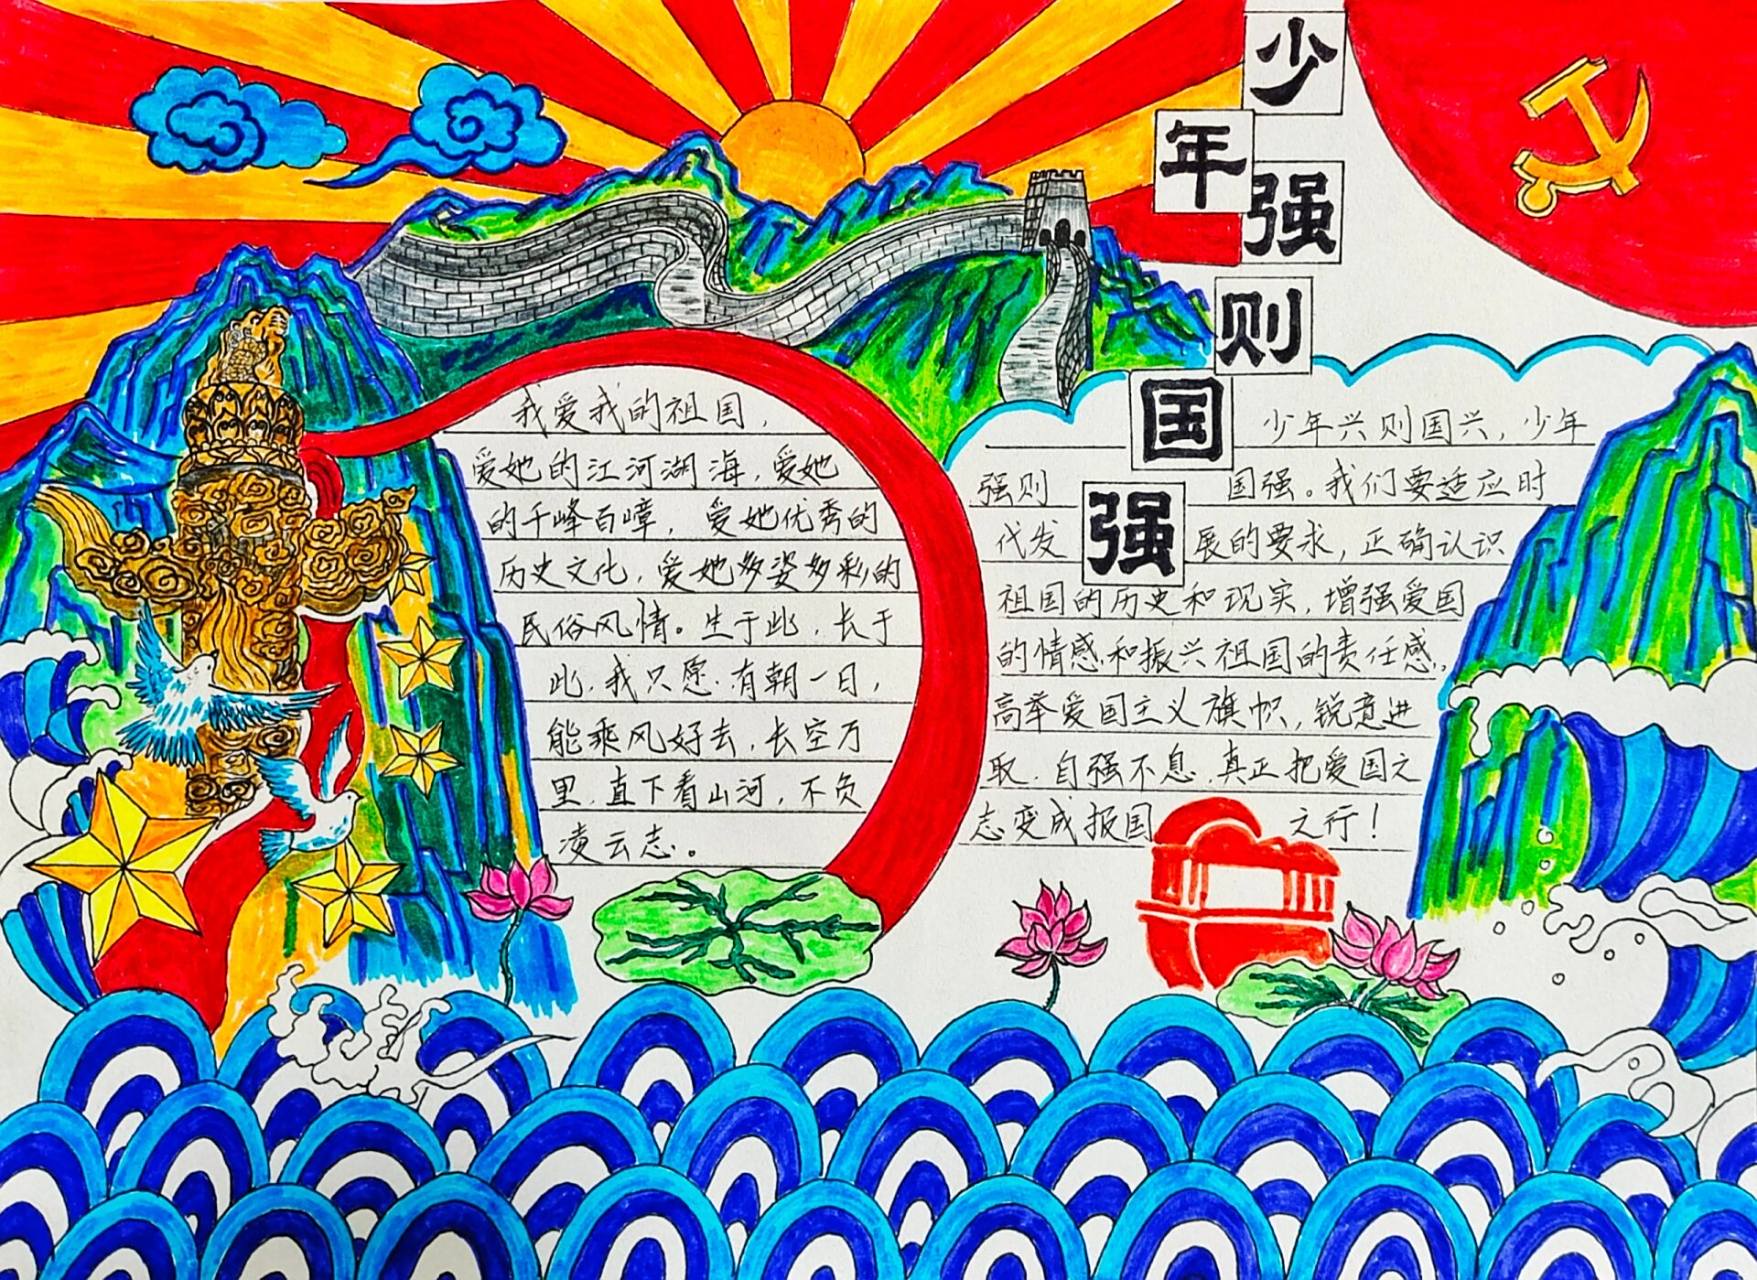 少年强则国强
我爱我的祖国，
爱她的江河湖海，爱她
的千峰百嶂，爱她优秀的
历史文化，爱她多姿多彩的
民俗风情。生于此，长于
此，我只愿，有朝一日，
能乘风好去，长空万
里，直下看山河，不负
凌云志。
少年兴则国兴，少年
强则国强。我们要适应时
代发展的要求，正确认识
祖国的历史和现实，增强爱国
的情感和振兴祖国的责任感，
高举爱国主义旗帜，锐意进
取，自强不息，真正把爱国之
志变成报国之行！